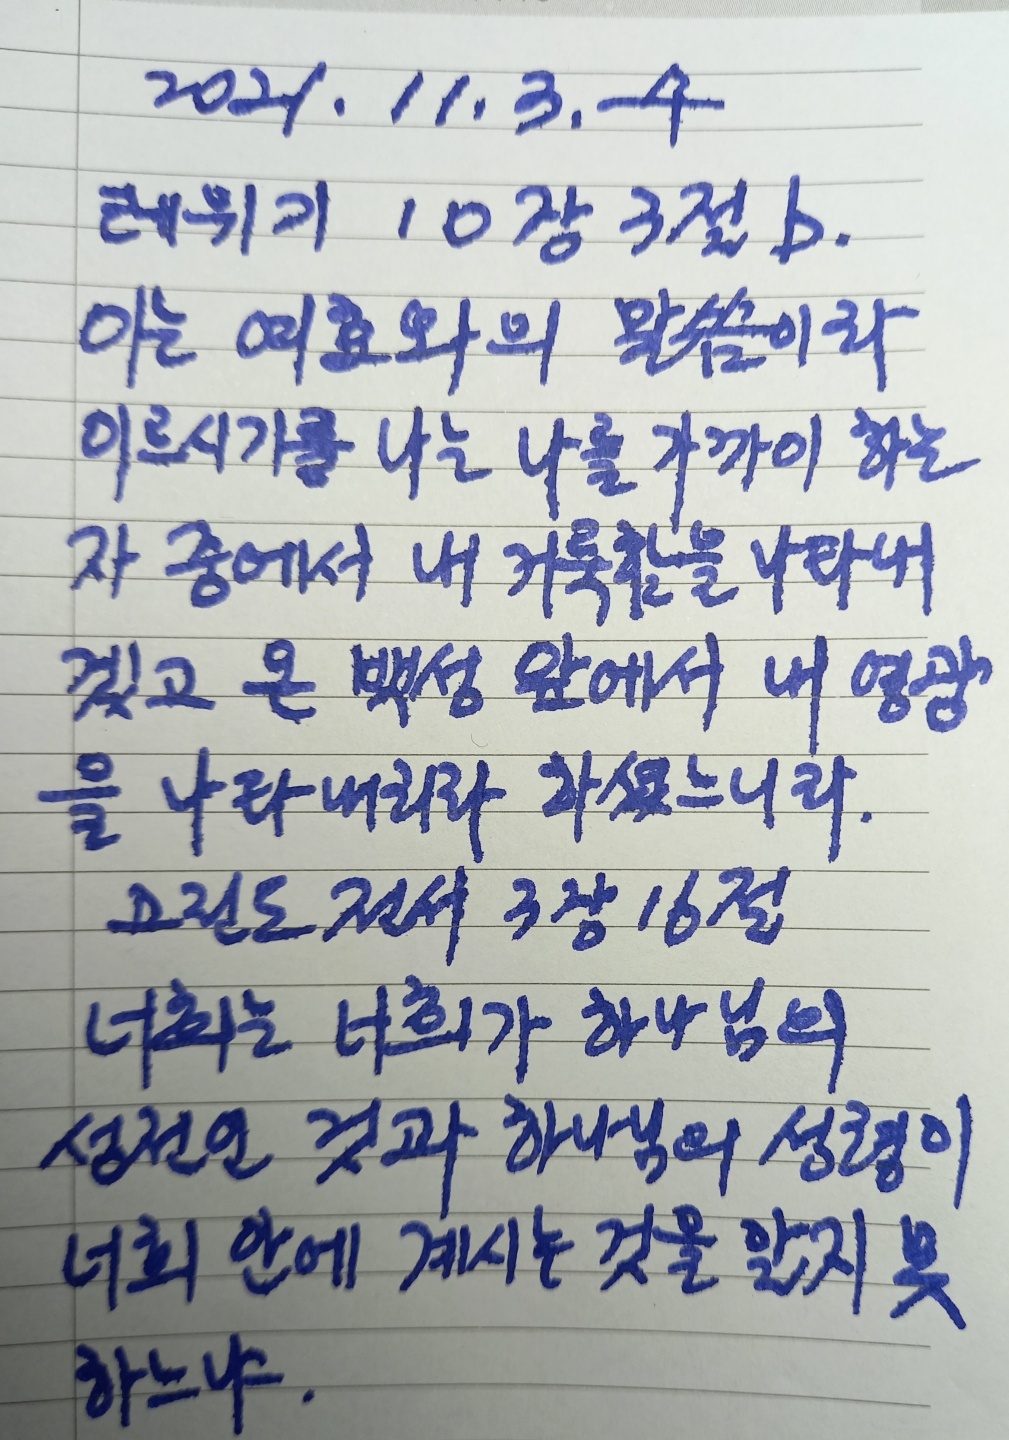 2021. 11. 3. 수
레위기 10장 3절 b.
이는 여호와의 말씀이라
이르시기를 나는 나를 가까이 하는
자 중에서 내 거룩함을 나타내
겠고 온 백성 앞에서 내 영광
을 나타내리라 하셨느니라.
고린도 전서 3장 16절
너희는 너희가 하나님의
성전인 것과 하나님의 성령이
너희 안에 계시는 것을 알지 못
하느냐.